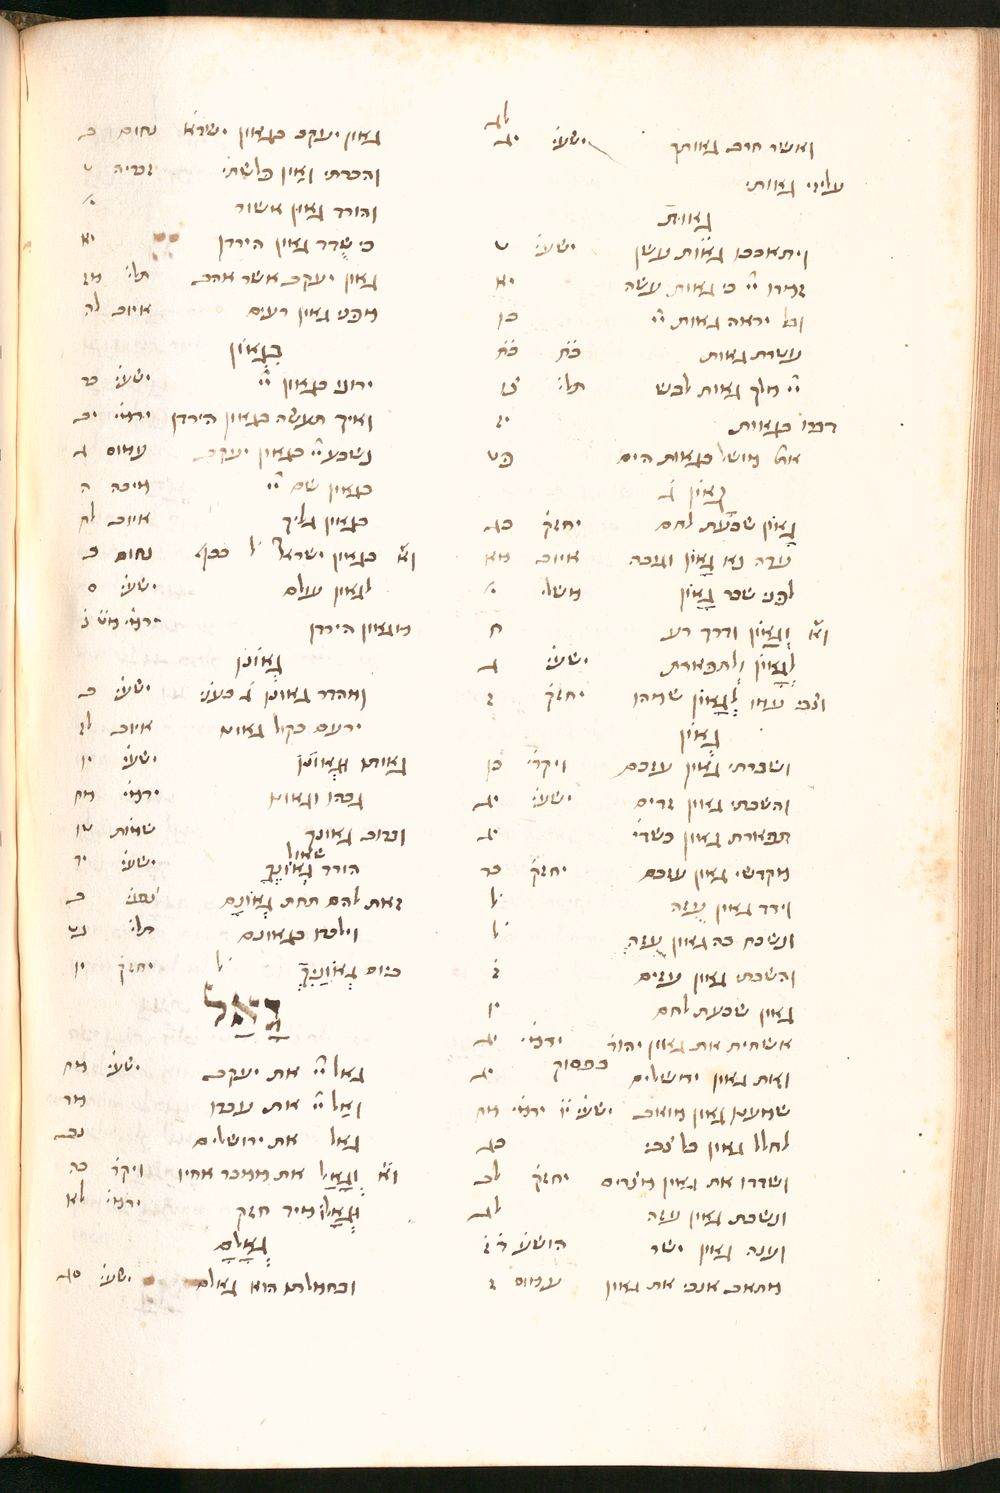 ואשר חרב גאותך ישעי׳ לג
עליזי גאותי יג
גאות
ויתאבכו גאות עשן ישעי׳ ט
זמרו יי כי גאות עשה יא
ובל יראה גאות יי כו
עטרת גאות כח כח
יי מלך גאות לבש תלי׳ צג
דברו בגאות יז
אתה מושל בגאות הים פט
גאון ג
גאון שבעת לחם יחזק׳ כג
עדה נא גאון וגבה איוב מא
לפני שבר גאון משלי י
וא׳ וגאון ודרך רע ח
לגאון ולתפארת ישעי׳ ג
וצבי עדיו לגאון שמהו יחזק׳ ז
גאון
ושברתי גאון עזכם ויקר׳ כו
והשבתי גאון זדים ישעי׳ יג
תפארת גאון כשדי׳ יג
מקדשי גאון עזכם יחזק׳ כד
וירד גאון עזה ל
ונשבת בה גאון עזה ל
והשבתי גאון עזים ז
גאון שבעת לחם יו
אשחית את גאון יהוד׳ ירמי׳ יג
ואת גאון ירושלים בפסוק יג
שמענו גאון מואב ישעי׳ יו ירמי׳ מח
לחלל גאון כל צבי כג
ושדדו את גאון מצרים יחזק׳ לב
ונשבת גאון עזה לג
וענה גאון ישר׳ הושע ה ז
מתאב אנכי את גאון עמוס ו
גאון יעקב כגאון ישרא׳ נחום ב
והכרתי גאון פלשתי׳ זכריה ט
והורד גאון אשור י
כי שדד גאון הירדן יא
גאון יעקב אשר אהב תלי׳ מז
מפני גאון רעים איוב לה
בגאון
ירונו בגאון יי ישעי׳ כד
ואיך תעשה בגאון הירדן ירמי׳ יב
נשבע יי בגאון יעקב עמוס ג
בגאון שם יי מיכה ה
בגאון גליך איוב לח
וא׳ כגאון ישראל ל בכף נחום ב
לגאון עולם ישעי׳ ס
מגאון הירדן ירמי׳ מט נ
גאונו
ומהדר גאונו ג בעני׳ ישעי׳ ב
ירעם בקול גאונו איוב לז
גאותו וגאונו ישעי׳ יו
גבהו וגאונו ירמי׳ מח
וברוב גאונך שמות טו
הורד שאול גאונך ישעי׳ יד
זאת להם תחת גאונם צפני׳ ב
וילכדו בגאונם תלי׳ נט
ביום גאוניך ל יחזק׳ יו
גאל
גאל יי את יעקב ישעי׳ מח
גאל יי את עבדו מד
גאל את ירושלים נב
וא׳ וגאל את ממכר אחיו ויקר׳ כה
וגאלו מיד חזק ירמי׳ לא
גאלם
ובחמלתו הוא גאלם ישעי׳ סג